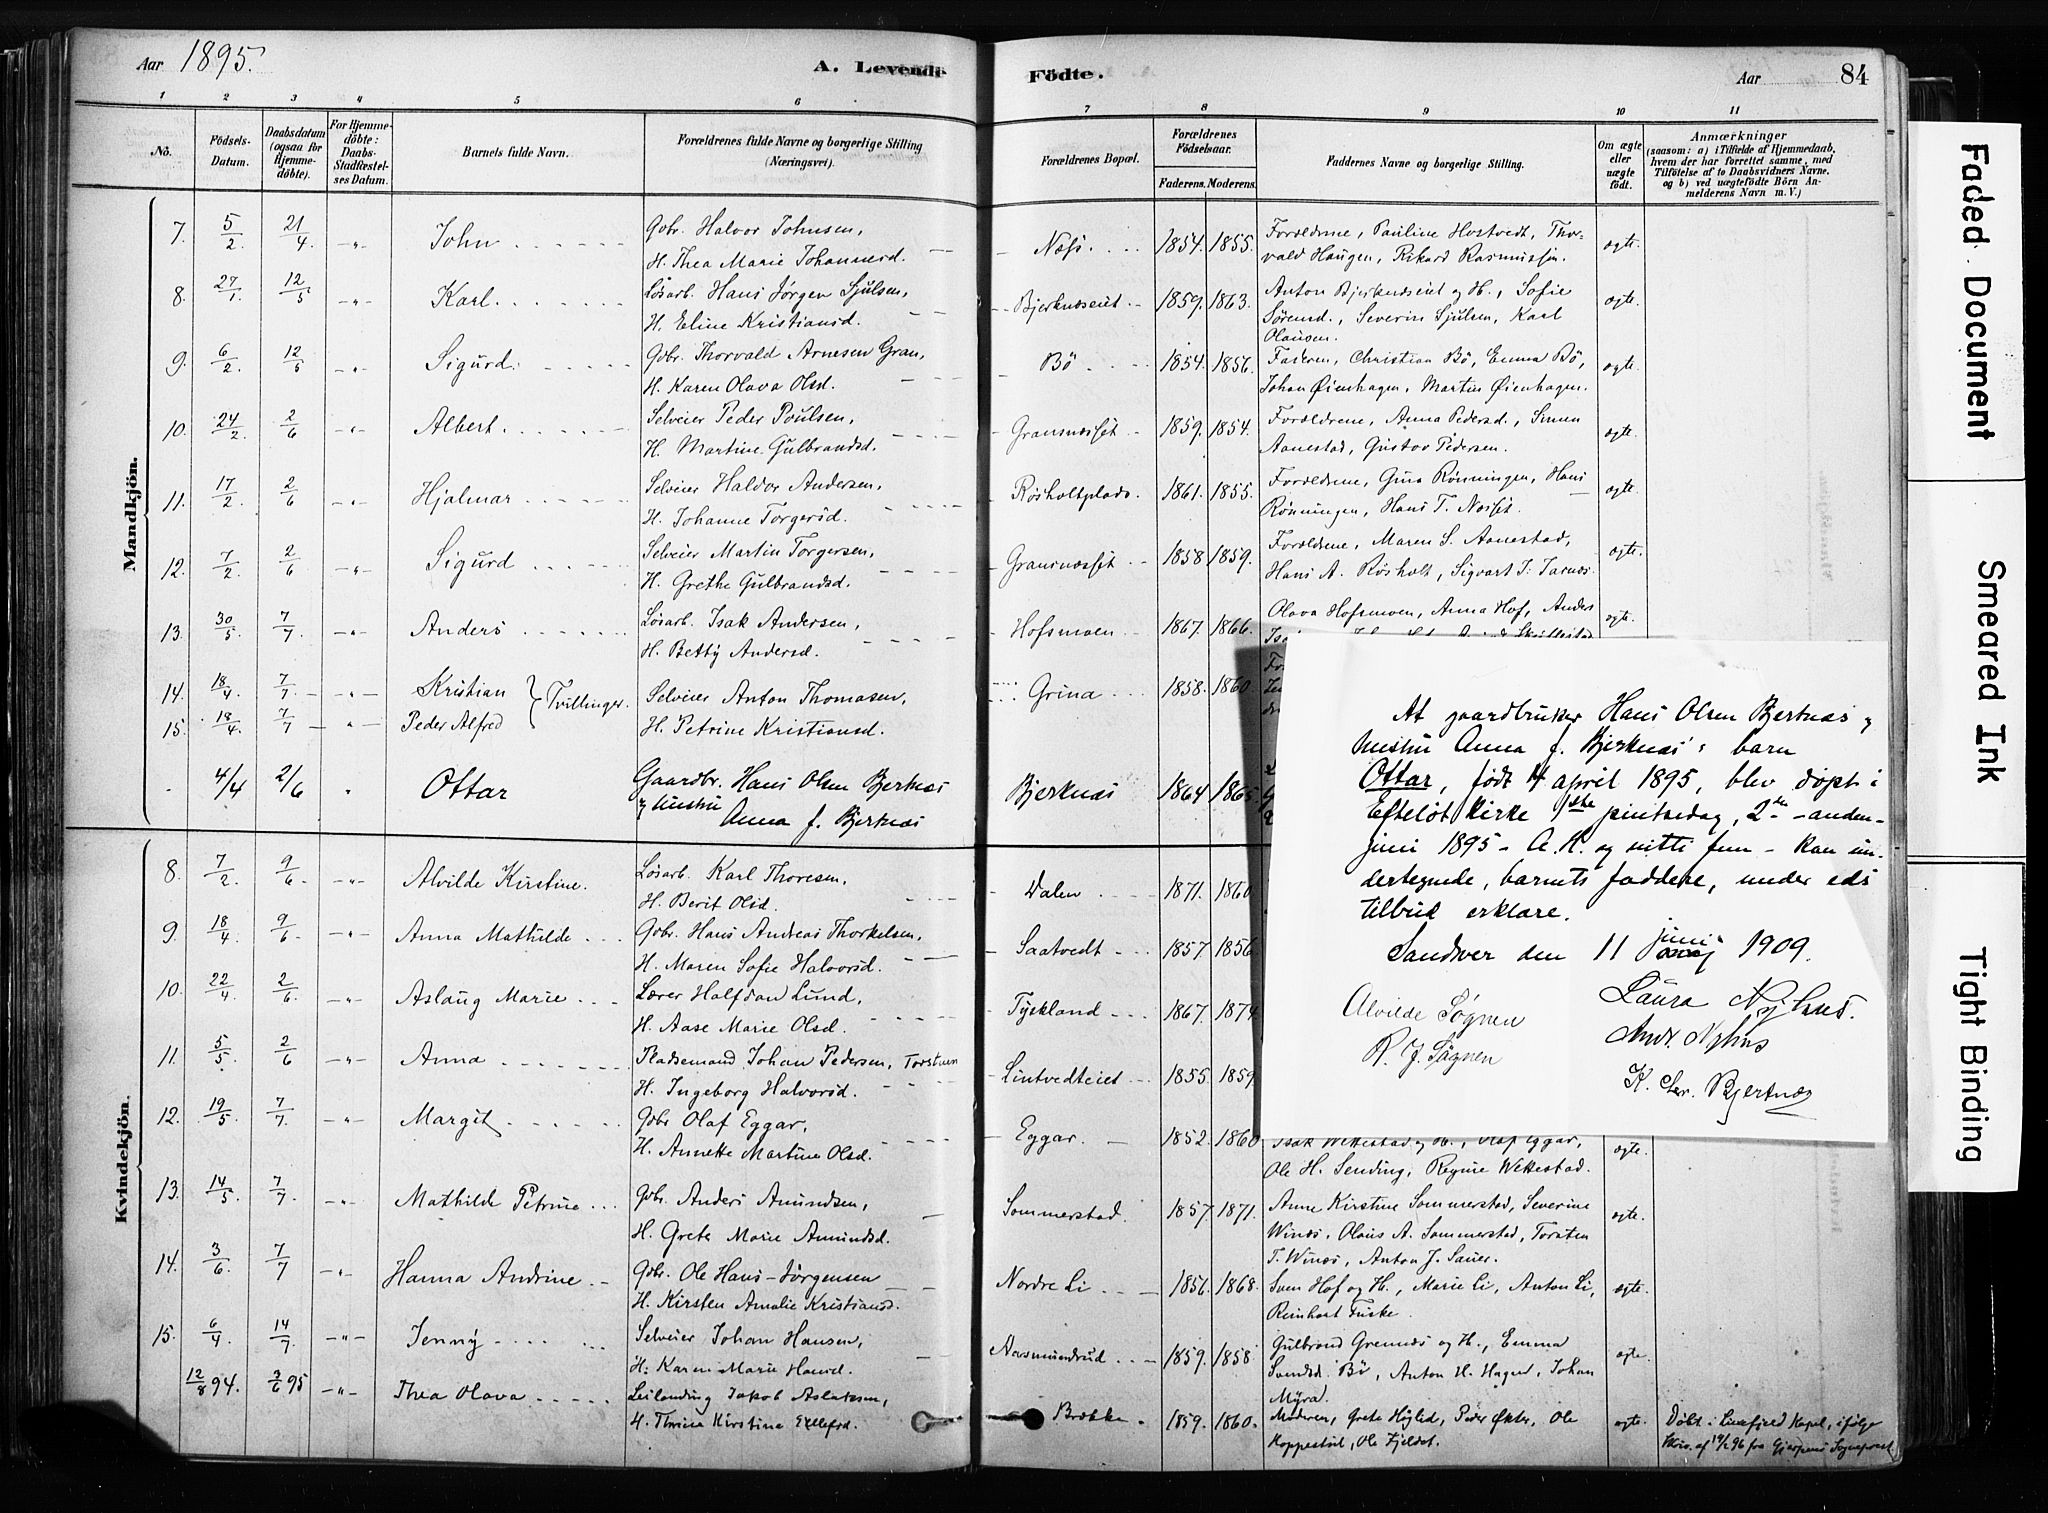 Aar 1895. A. Levende Födte. Aar 84
1 2 3 4 5 6 7 8 9 10 11
No. Födsels-Datum. Daabsdatum (ogsaa for Hjemme-döbte). For Hjemme-döbte: Daabs-Stadfæstel-ses Datum. Barnets fulde Navn. Forældrenes fulde Navne og borgerlige Stilling (Næringsvei). Forældrenes Bopæl. Forældrenes Födselsaar. Faderens. Moderens. Faddernes Navne og borgerlige Stilling. Om ægte eller uægte födt. Anmærkninger (saasom: a) i Tilfælde af Hjemmedaab, hvem der har forrettet samme, med Tilföielse af to Daabsvidners Navne, og b) ved uægtefödte Börn An-melderens Navn m. V.)
Mandkjön.
7. 5/2 21/4 -"- John Gbr. Halvor Johnsen, Næss. 1854. 1855. Forældrene, Pauline Hostvedt, Thor- ægte.
H. Thea Marie Johannesd. vald Haugen, Rikard Rasmussen.
8. 27/1. 12/5 -"- Karl. Løsarb. Hans Jørgen Sjulsen, Bjerknæseiet 1859. 1863. Anton Bjerknæseiet og H., Sofie ægte.
H. Eline Kristiansd. Sørensd., Severin Sjulsen, Karl
Olausen.
9. 6/2 12/5 -"- Sigurd. Gbr. Thorvald Arnesen Gran, Bö 1854. 1856. Faderen, Christian Bö, Emma Bö, ægte.
H. Karen Olava Olsd. Johan Øienhagen, Martin Øienhagen.
10. 24/2. 2/6 -"- Albert. Selveier Peder Poulsen, Gransnæsset 1859. 1854. Forældrene, Anna Pedersd., Simen ægte.
H. Martine Gulbrandsd. Aanestad, Gustav Pedersen.
11. 17/2. 2/6 -"- Hjalmar Selveier Haldor Andersen, Røsholtplads. 1861. 1855. Forældrene, Gina Rønningen, Hans ægte.
H. Johanne Torgersd. Rønningen, Hans T. Næsset.
12. 7/2 2/6 -"- Sigurd Selveier Martin Torgersen, Gransnæsset 1858 1859. Forældrene, Maren S. Aanestad, ægte.
H. Grethe Gulbrandsd. Hans A. Røsholt, Sigvart J.
13. 30/5. 7/7. -"- Anders Løsarb. Isak Andersen, Hofsmoen 1867. 1866. Olava Hofsmoen, Anna Hof, Anders ægte.
H. Betty Andersd.
14. 18/4. 7/7. -"- Kristian } Tvillinger. Selveier Anton Thomasen, Grina 1858. 1860.
15. 18/4 7/7 -"- Peder Alfred H. Petrine Kristiansd.
4/4 2/6 " Ottar Gaardbr. Hans Olsen Bjerknæs Bjerknæs 1864 1865
og hustru Anna f. Bjerknæs
At gaardbruker Hans Olsen Bjerknæs og
hustru Anna f. Bjerknæs's barn
Ottar, født 4 april 1895, blev døpt i
Efteløt kirke 1ste pintsedag, 2den - anden -
juni 1895 - A. K. og nitti fem - kan un-
dertegnede, barnets faddere, under eds
tilbud erklære.
Sandsvær den 11 juni 1909.
Alvilde Søgnen Laura
R. J. Søgnen Nyhus
K. Chr. Bjertnæs
Kvindekjön.
8. 7/2. 9/6. -"- Alvilde Kirstine. Løsarb. Karl Thoresen, Dalen 1871. 1860
H. Berit Olsd.
9. 18/4 9/6. -"- Anna Mathilde Gbr. Hans Andreas Thorkelsen, Saatvedt 1857. 1856.
H. Maren Sofie Halvorsd.
10. 22/4 2/6 -"- Aslaug Marie Lærer Halfdan Lund, Tyskland 1867. 1874.
H. Aase Marie Olsd.
11. 5/5. 2/6 -"- Anna Pladsemand Johan Pedersen, Torstven Lintvedteiet 1855. 1859
H. Ingeborg Halvorsd.
12. 19/5. 7/7. -"- Margit Gbr Olaf Eggar, Eggar. 1852. 1860 Isak Wettestad og H., Olaf Eggar, ægte.
H. Annette Martine Olsd. Ole H. Sending, Regine Wettestad.
13. 14/5. 7/7 -"- Mathilde Petrine Gbr. Anders Amundsen, Sommerstad. 1857. 1871. Anne Kirstine Sommerstad, Severine ægte.
H. Grete Marie Amundsd. Winæs, Olaus A. Sommerstad, Torsten
T. Winæs, Anton J. Sauer.
14. 3/6. 7/7 -"- Hanna Andrine Gbr. Ole Hans-Jørgensen Nordre Li 1856. 1868. Sven Hof og H., Marie Li, Anton Li, ægte.
H. Kirsten Amalie Kristiansd. Reinhart Fuske.
15. 6/4. 14/7 -"- Jenny Selveier Johan Hansen, Aasmundrud 1859. 1858. Gulbrand Grennæs og H., Emma ægte.
H. Karen Marie Hansd. Bö, Anton H. Hagen, Johan
Myra.
12/8 94. 3/6 95 -"- Thea Olava Leilending Jakob Aslaksen, Brække 1859. 1860. Moderen, Grete Høglid, Peder Økter, Ole ægte Døbt i Luxefjeld Kapel, ifølge
H. Thrine Kirstine Ellefsd. Koppestöl, Ole Fjeldet. Skriv. af 19/2 96 fra Gjerpens Sognepræst
Faded Document
Smeared Ink
Tight Binding